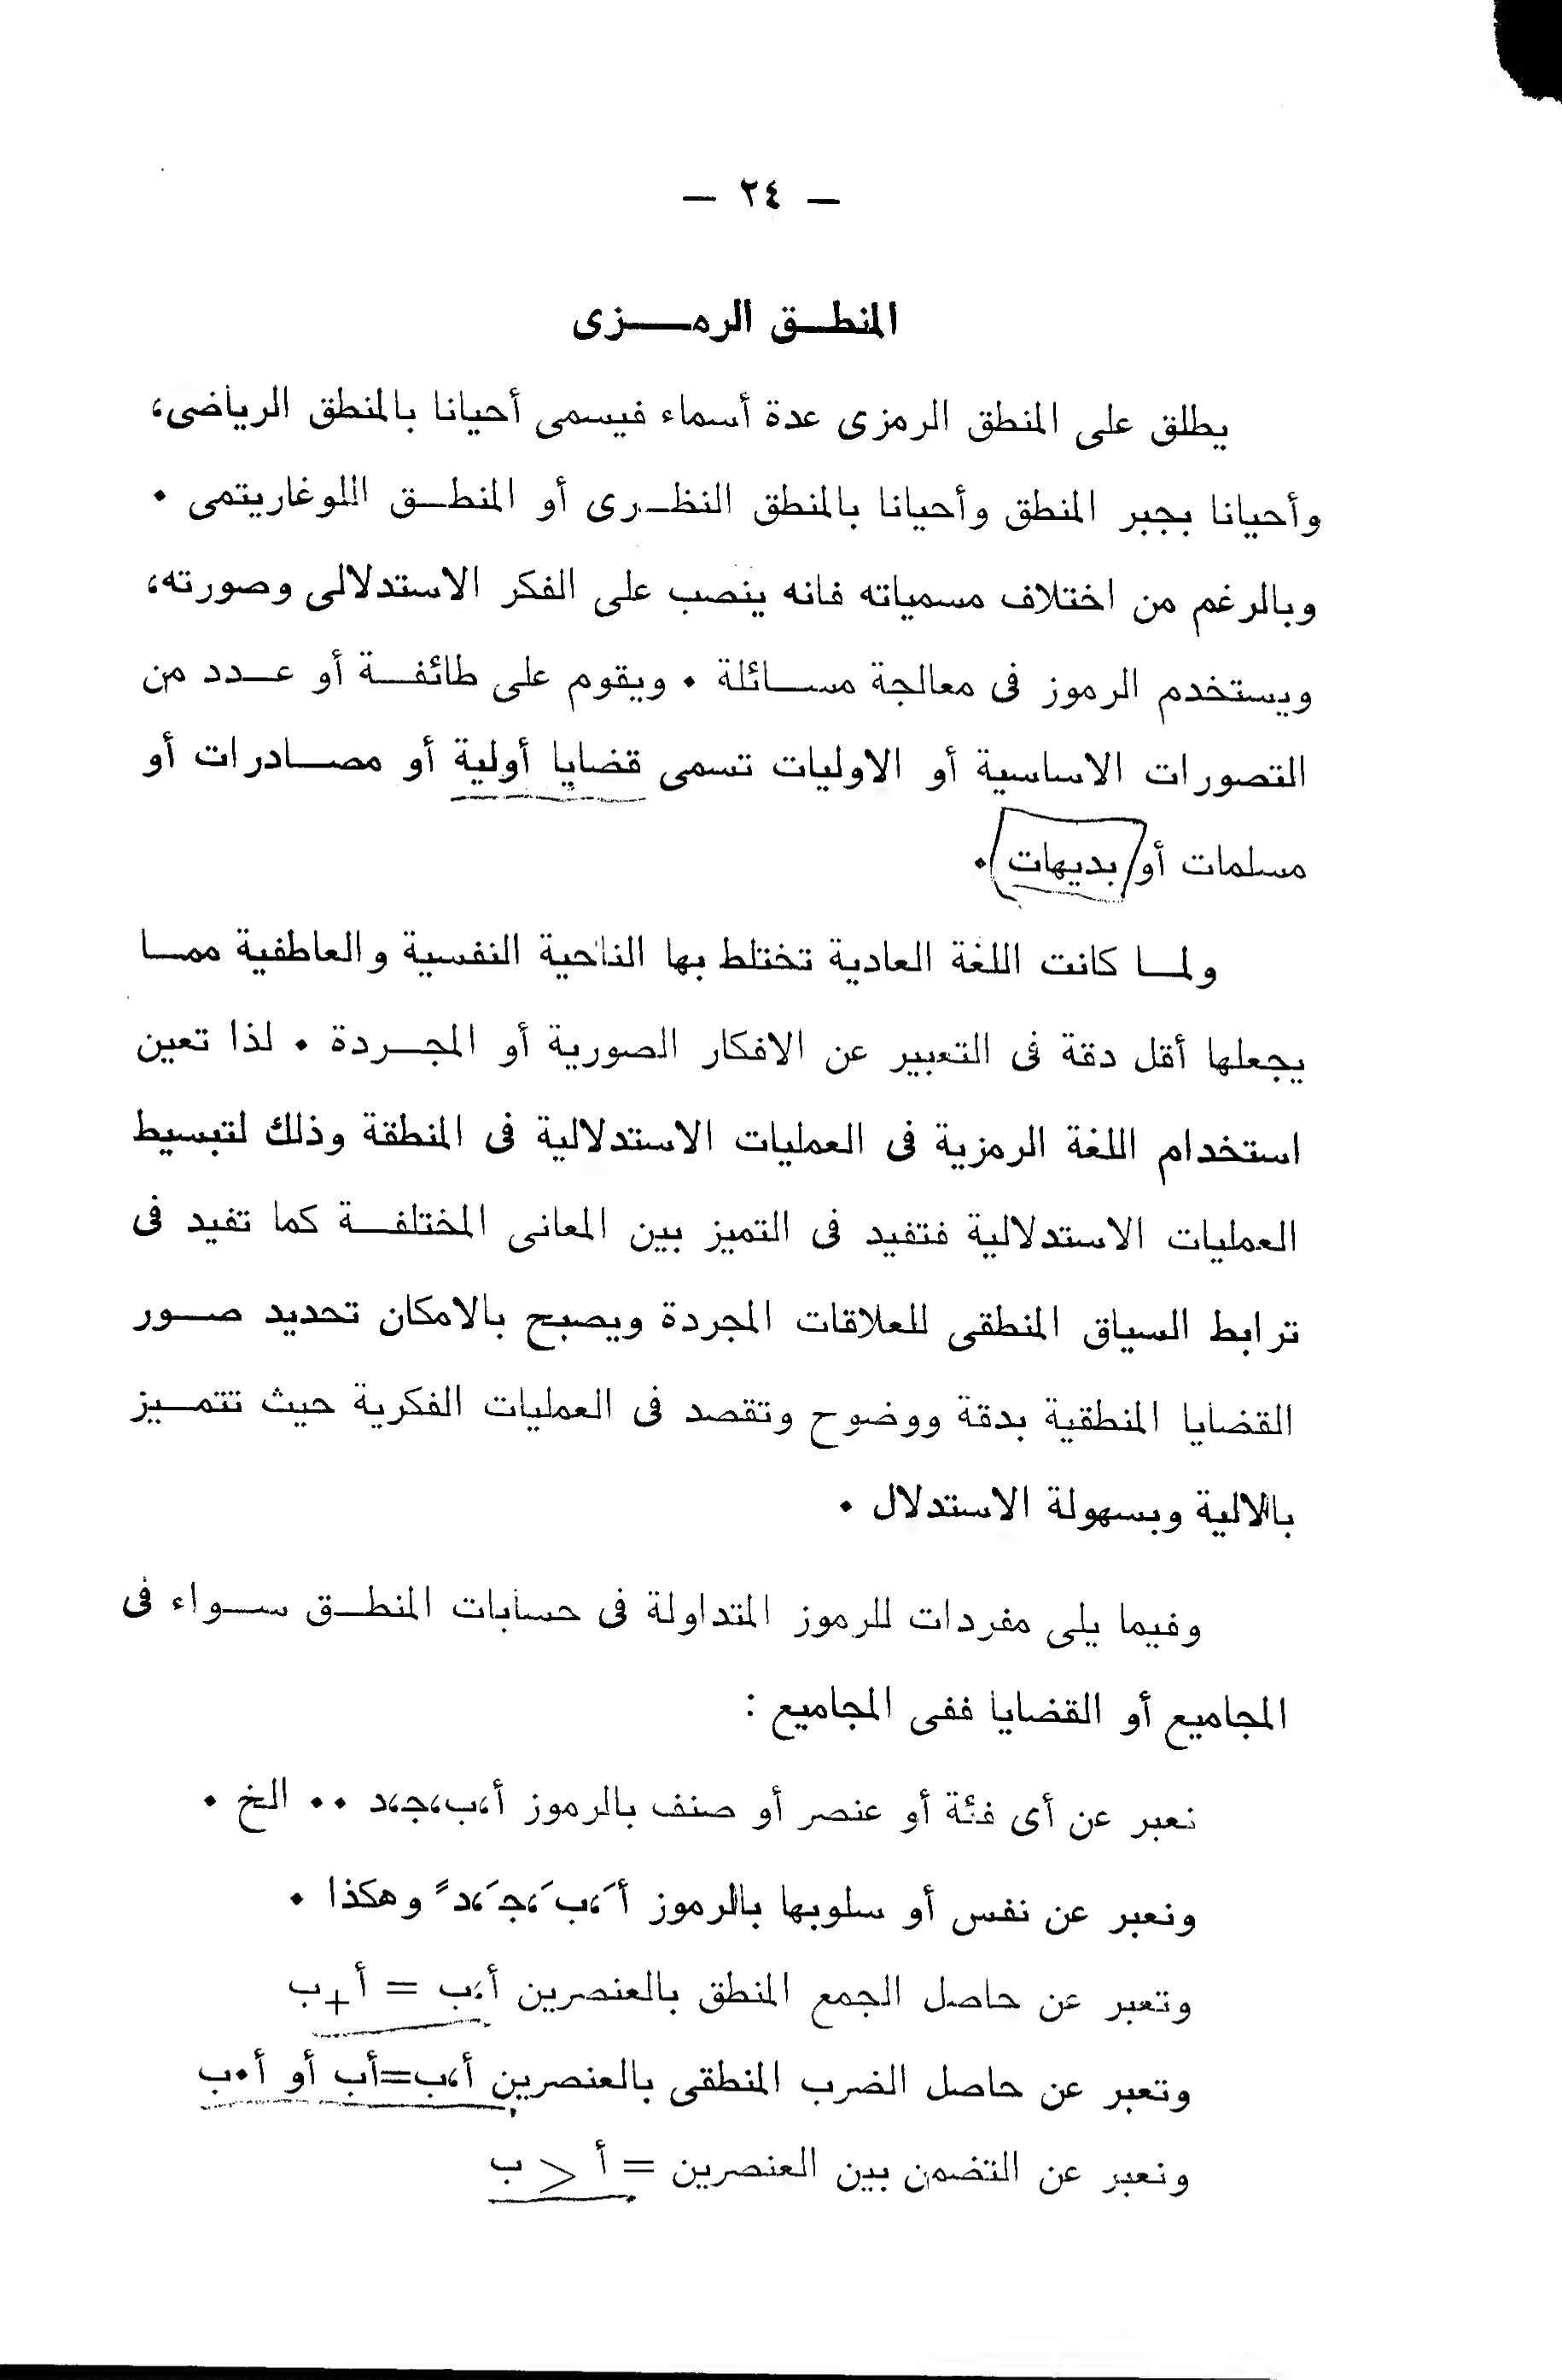 — ٢٤ —
المنطق الرمزى
يطلق على المنطق الرمزى عدة أسماء فيسمى أحيانا بالمنطق الرياضى،
وأحيانا بجبر المنطق وأحيانا بالمنطق النظرى أو المنطق اللوغاريتمى ٠
وبالرغم من اختلاف مسمياته فانه ينصب على الفكر الاستدلالى وصورته،
ويستخدم الرموز فى معالجة مسائلة ٠ ويقوم على طائفة أو عدد من
التصورات الاساسية أو الاوليات تسمى قضايا أولية أو مصادرات أو
مسلمات أو بديهات ٠
ولما كانت اللغة العادية تختلط بها الناحية النفسية والعاطفية مما
يجعلها أقل دقة فى التعبير عن الافكار الصورية أو المجردة ٠ لذا تعين
استخدام اللغة الرمزية فى العمليات الاستدلالية فى المنطقة وذلك لتبسيط
العمليات الاستدلالية فتفيد فى التميز بين المعانى المختلفة كما تفيد فى
ترابط السياق المنطقى للعلاقات المجردة ويصبح بالامكان تحديد صور
القضايا المنطقية بدقة ووضوح وتقصد فى العمليات الفكرية حيث تتميز
بالالية وبسهولة الاستدلال ٠
وفيما يلى مفردات للرموز المتداولة فى حسابات المنطق سواء فى
المجاميع أو القضايا ففى المجاميع :
نعبر عن أى فئة أو عنصر أو صنف بالرموز أ،ب،ج،د ٠٠ الخ ٠
ونعبر عن نفس أو سلوبها بالرموز أَ،بَ،جَ،دً وهكذا ٠
وتعبر عن حاصل الجمع المنطق بالعنصرين أ،ب = أ+ب
وتعبر عن حاصل الضرب المنطقى بالعنصرين أ،ب=أب أو أ٠ب
ونعبر عن التضمن بين العنصرين = أ > ب